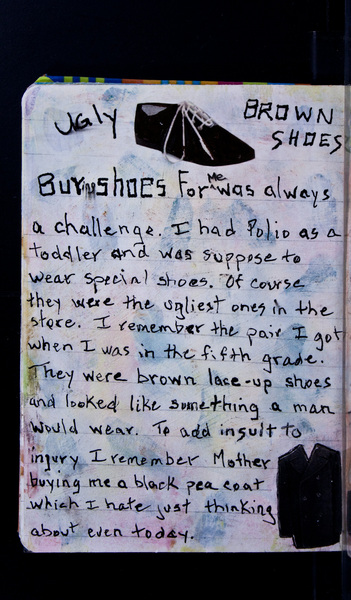 UGLY BROWN
SHOES
Buying shoes for me was always
a challenge. I had Polio as a
toddler and was suppose to
wear special shoes. Of course
they were the ugliest ones in the
store. I remember the pair I got
when I was in the fifth grade.
They were brown lace-up shoes
and looked like something a man
would wear. To add insult to
injury I remember Mother
buying me a black pea coat
which I hate just thinking
about even today.